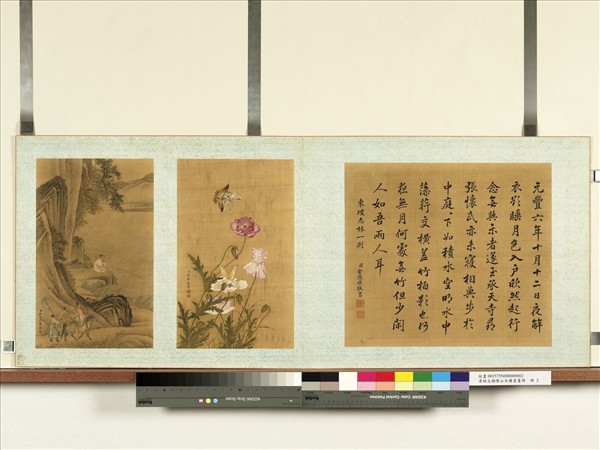 元豐六年十月十二日夜解
衣欲睡月色入戶欣然起行
念無與樂者遂至承天寺尋
張懷民亦未寢相與步於
中庭〻下如積水空明水中
藻荇交橫蓋竹柏影也何
夜無月何處無竹但少閒
人如吾兩人耳
東坡志林一則
KODAK Gray Scale
KODAK Color Control Patches